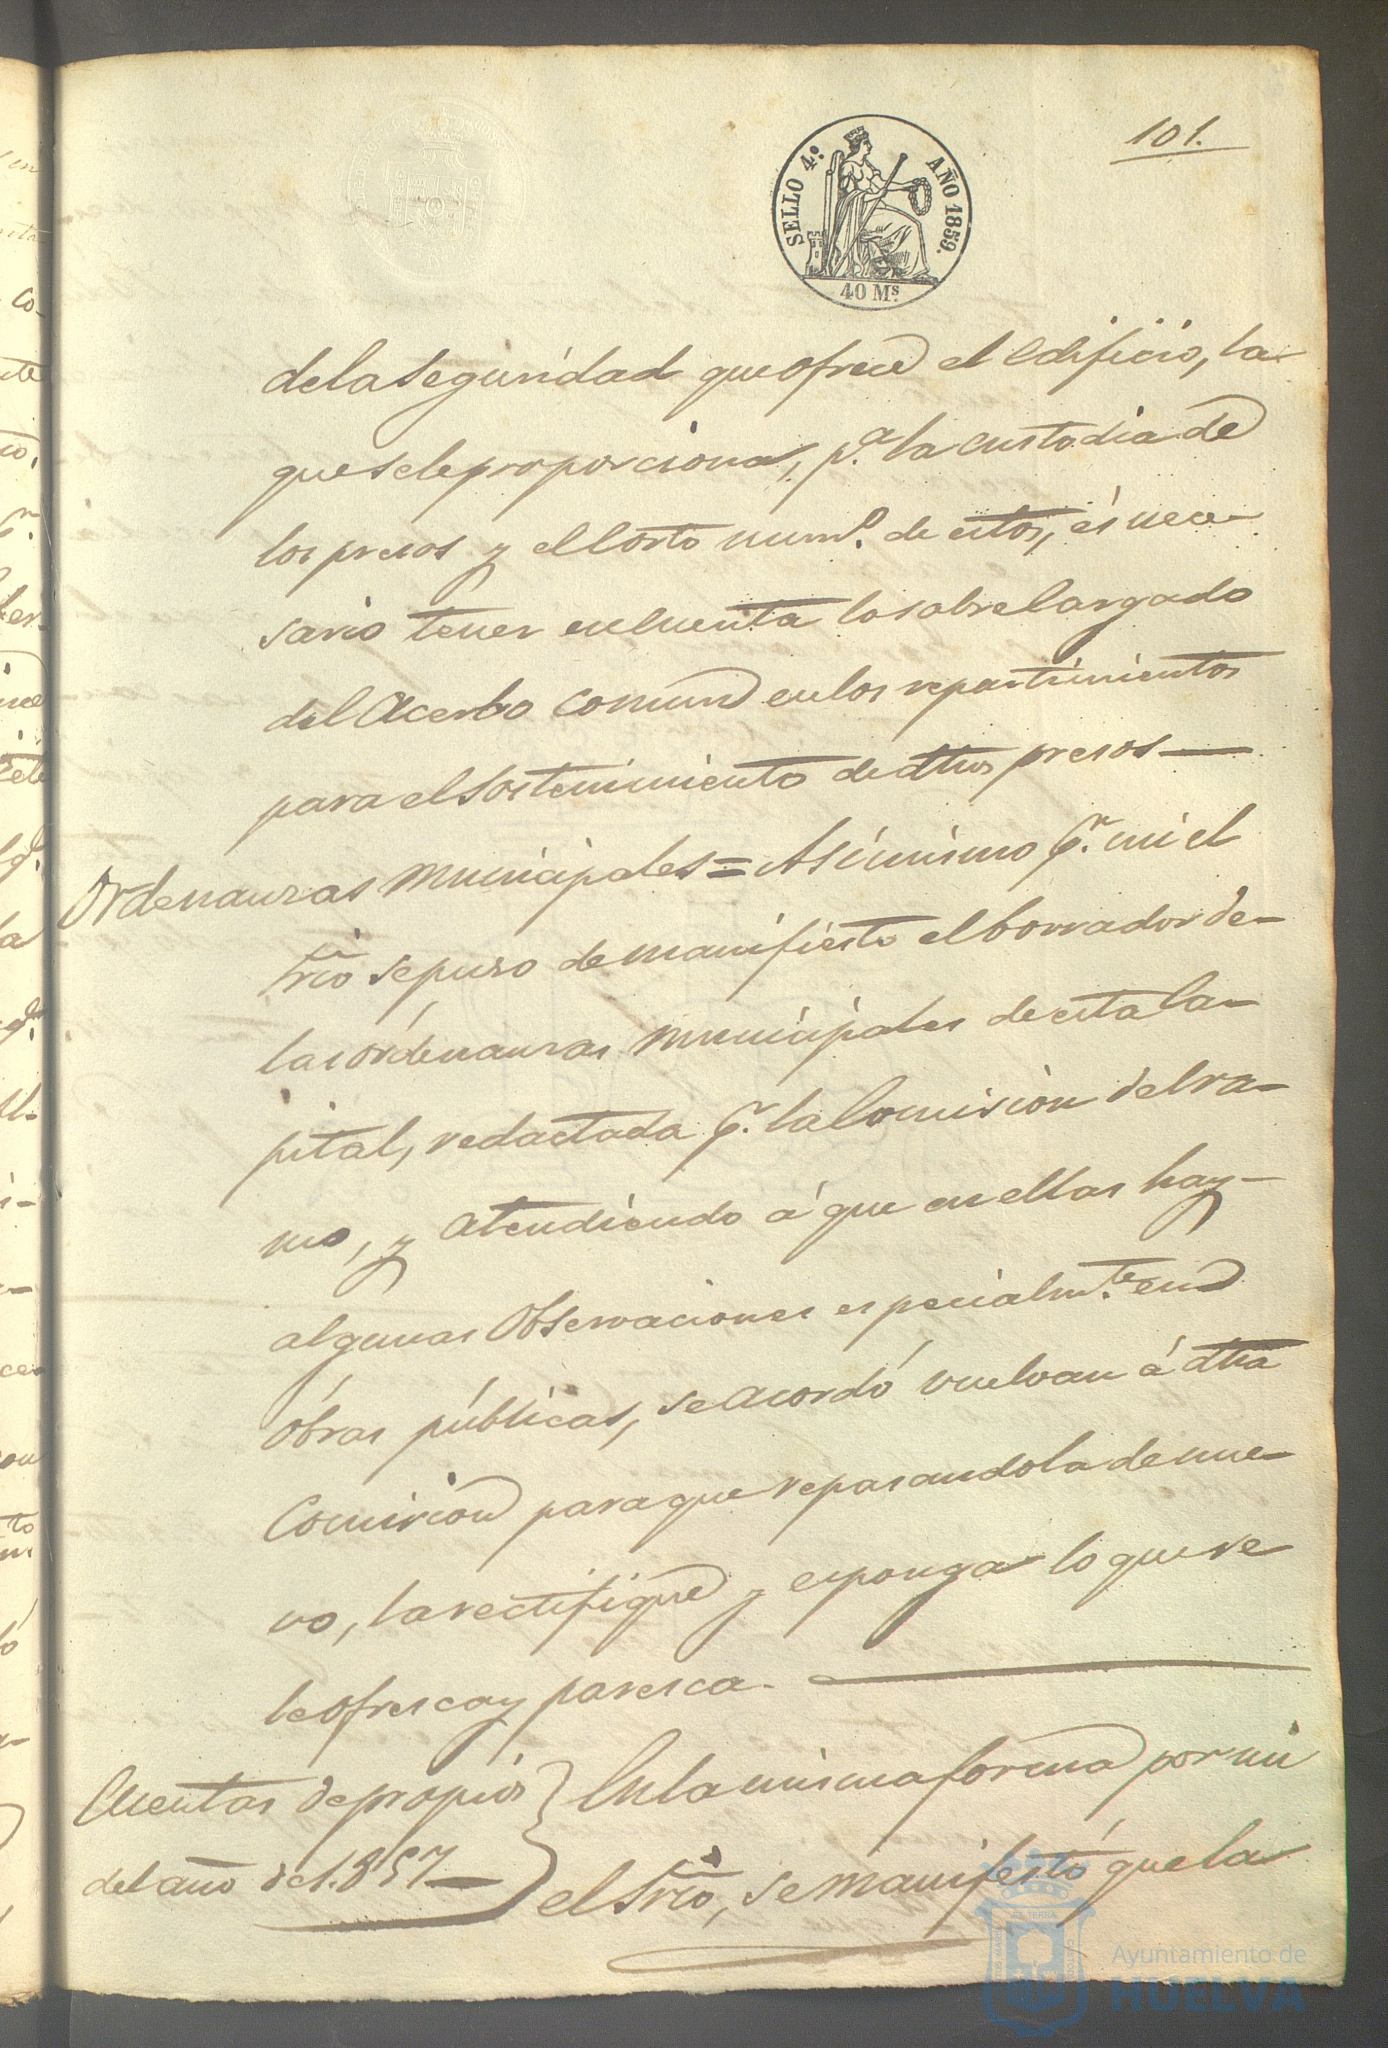 101.
SELLO 4.º AÑO 1859.
40 Ms.
dela seguridad que ofrece el edificio, la
que se le proporciona, p.ª la custodia de
los presos y el corto num.º de estos, és nece-
sario tener en cuenta lo sobrecargado
del Acerbo comun en los repartimientos
para el sostenimiento de dhos presos—
Ordenanzas municipales = Asimismo p.r mi el
Srio se puso de manifiesto el borrador de-
las órdenanzas municipales de esta Ca-
pital, redactada p.r la Comision del ra-
mo, y atendiendo á que en ellas hay-
algunas Observaciones especialm.te en
óbras públicas, se acordó vuelvan á dha
Comision para que repasandola de nue-
vo, la rectifique y esponga lo que se
le ofresca y paresca.
Cuentas de propios } En la misma forma por mi
del año de 1.857— } el Srio, se manifestó que la
Ayuntamiento de
HUELVA